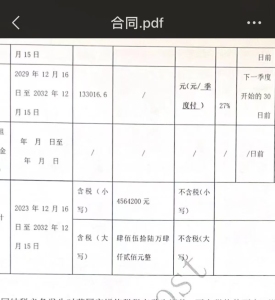 合同.pdf
月 15 日
日前
2029 年 12 月 16
日至 2032 年 12
月 15 日
133016.6
/
元(元/ 季
度付 )
27%
下一季度
开始的 30
日前
金
年 月 日至
年 月 日
/
/
/
/
/日前
计
2023 年 12 月 16
日至 2032 年 12
月 15 日
含税（小
写）
4564200 元
不含税（小
写）
含税（大
写）
肆佰伍拾陆万肆
仟贰佰元整
不含税（大
写）